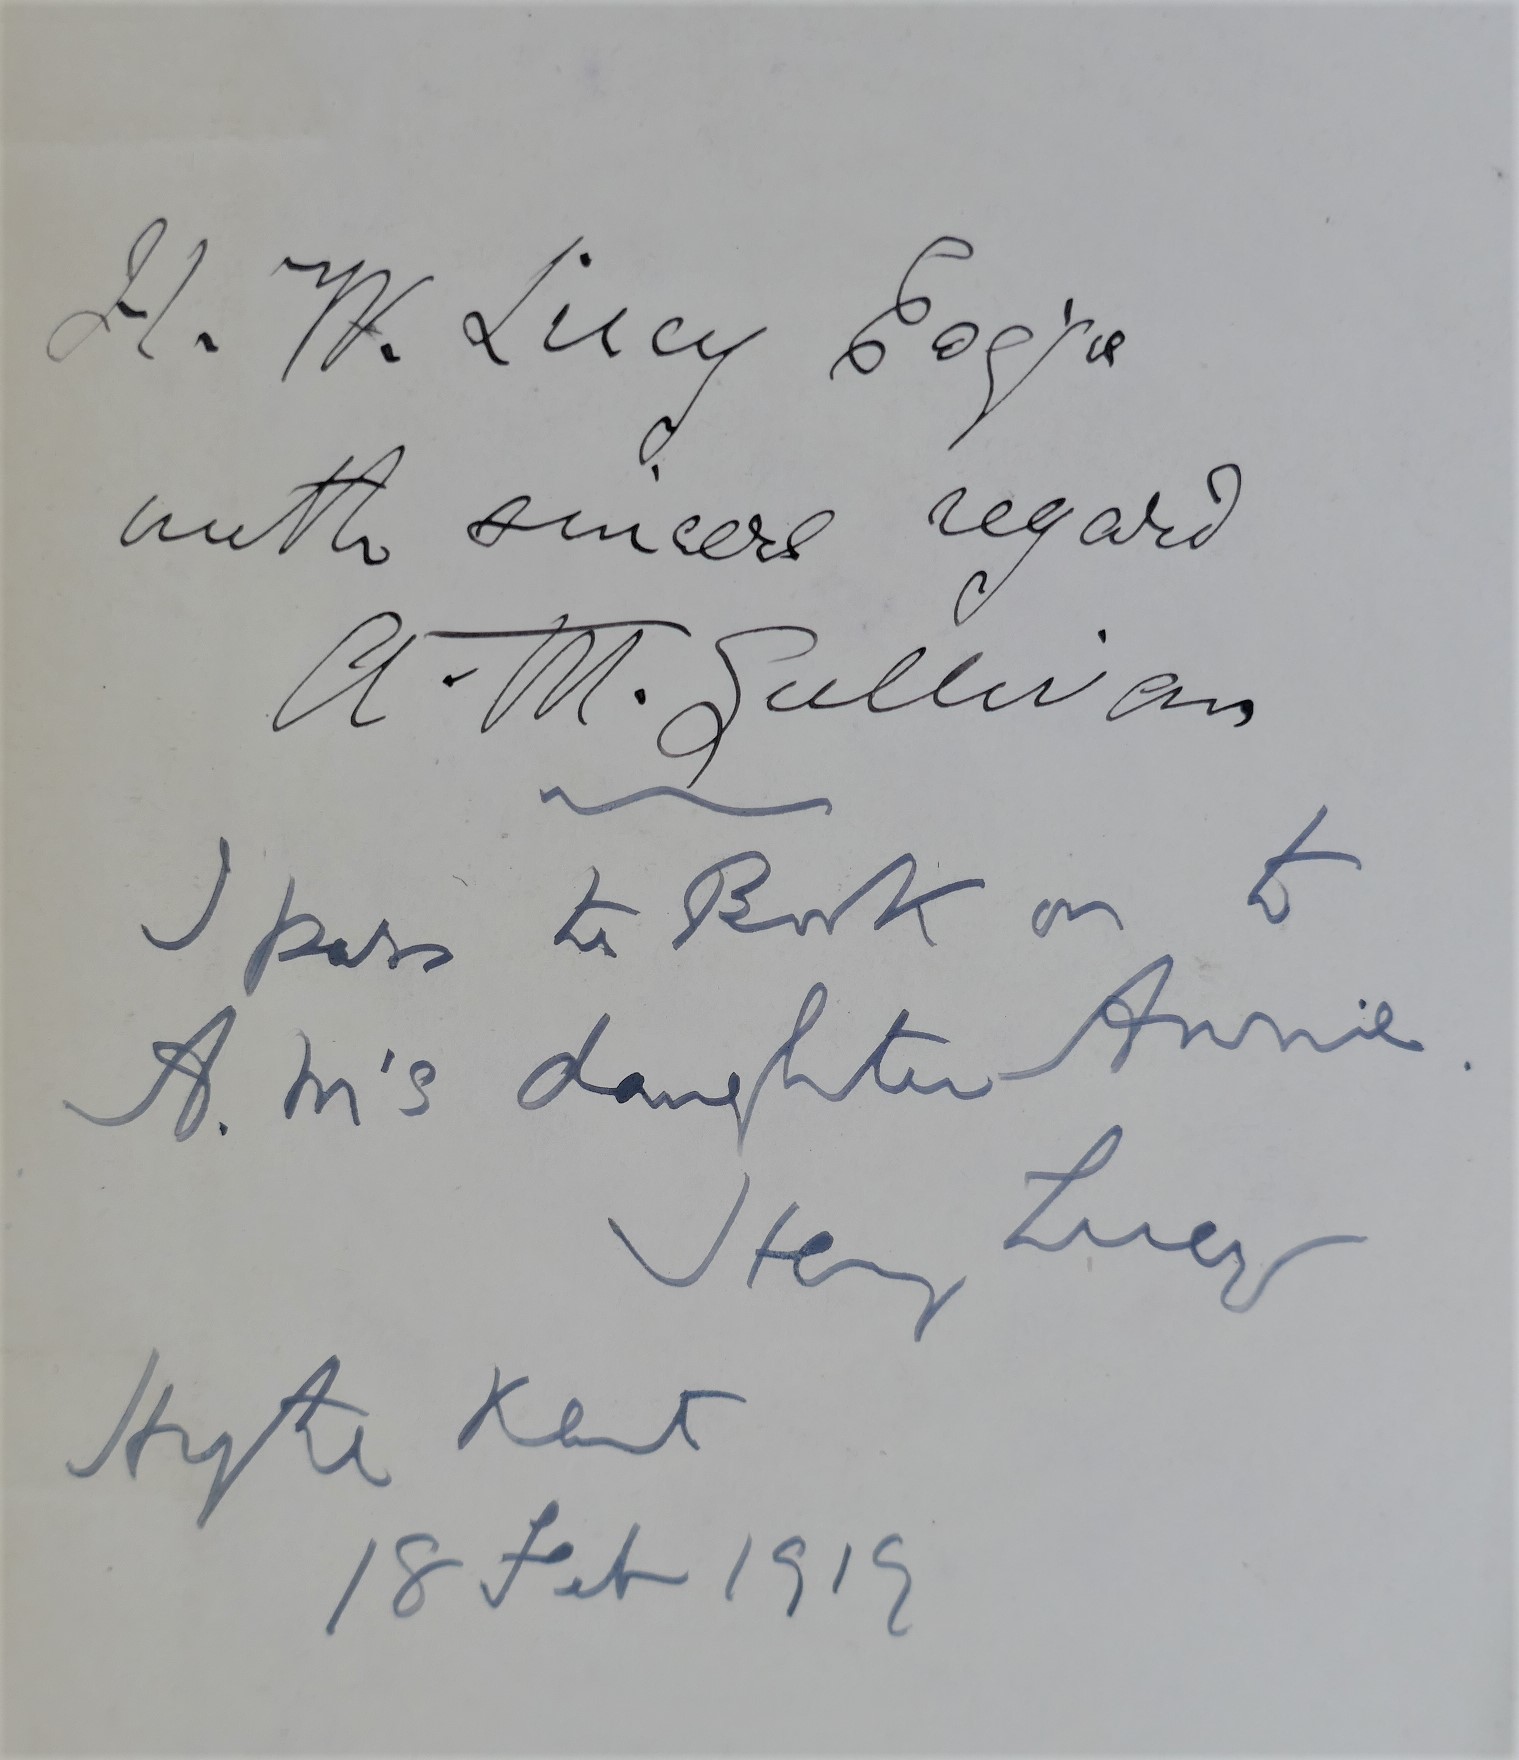 H. W. Lucy Esq're
with sincere regard
A. M. Sullivan
I pass the Book on to
A. M's daughter Annie.
Henry Lucy
Hythe Kent
18 Feb 1919